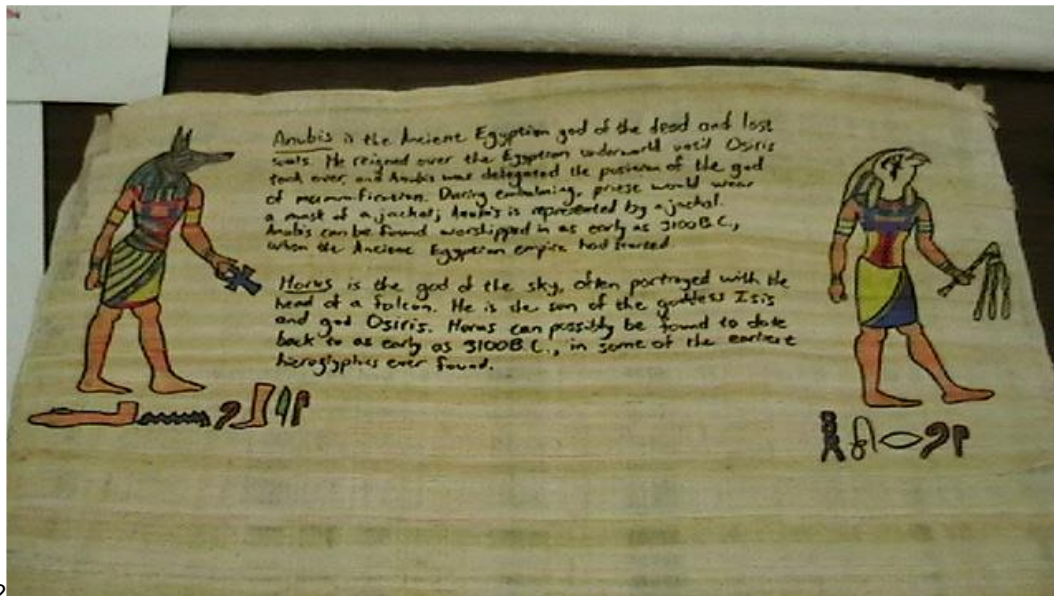 Anubis is the Ancient Egyptian god of the dead and lost
souls. He reigned over the Egyptian underworld until Osiris
took over, and Anubis was delegated the position of the god
of mummification. During embalming, priest would wear
a mask of a jackal; Anubis is represented by a jackal.
Anubis can be found worshipped in as early as 3100 B.C.,
when the Ancient Egyptian empire had started.
Horus is the god of the sky, often portrayed with the
head of a falcon. He is the son of the goddess Isis
and god Osiris. Horus can possibly be found to date
back to as early as 3100 B.C., in some of the earliest
hieroglyphics ever found.